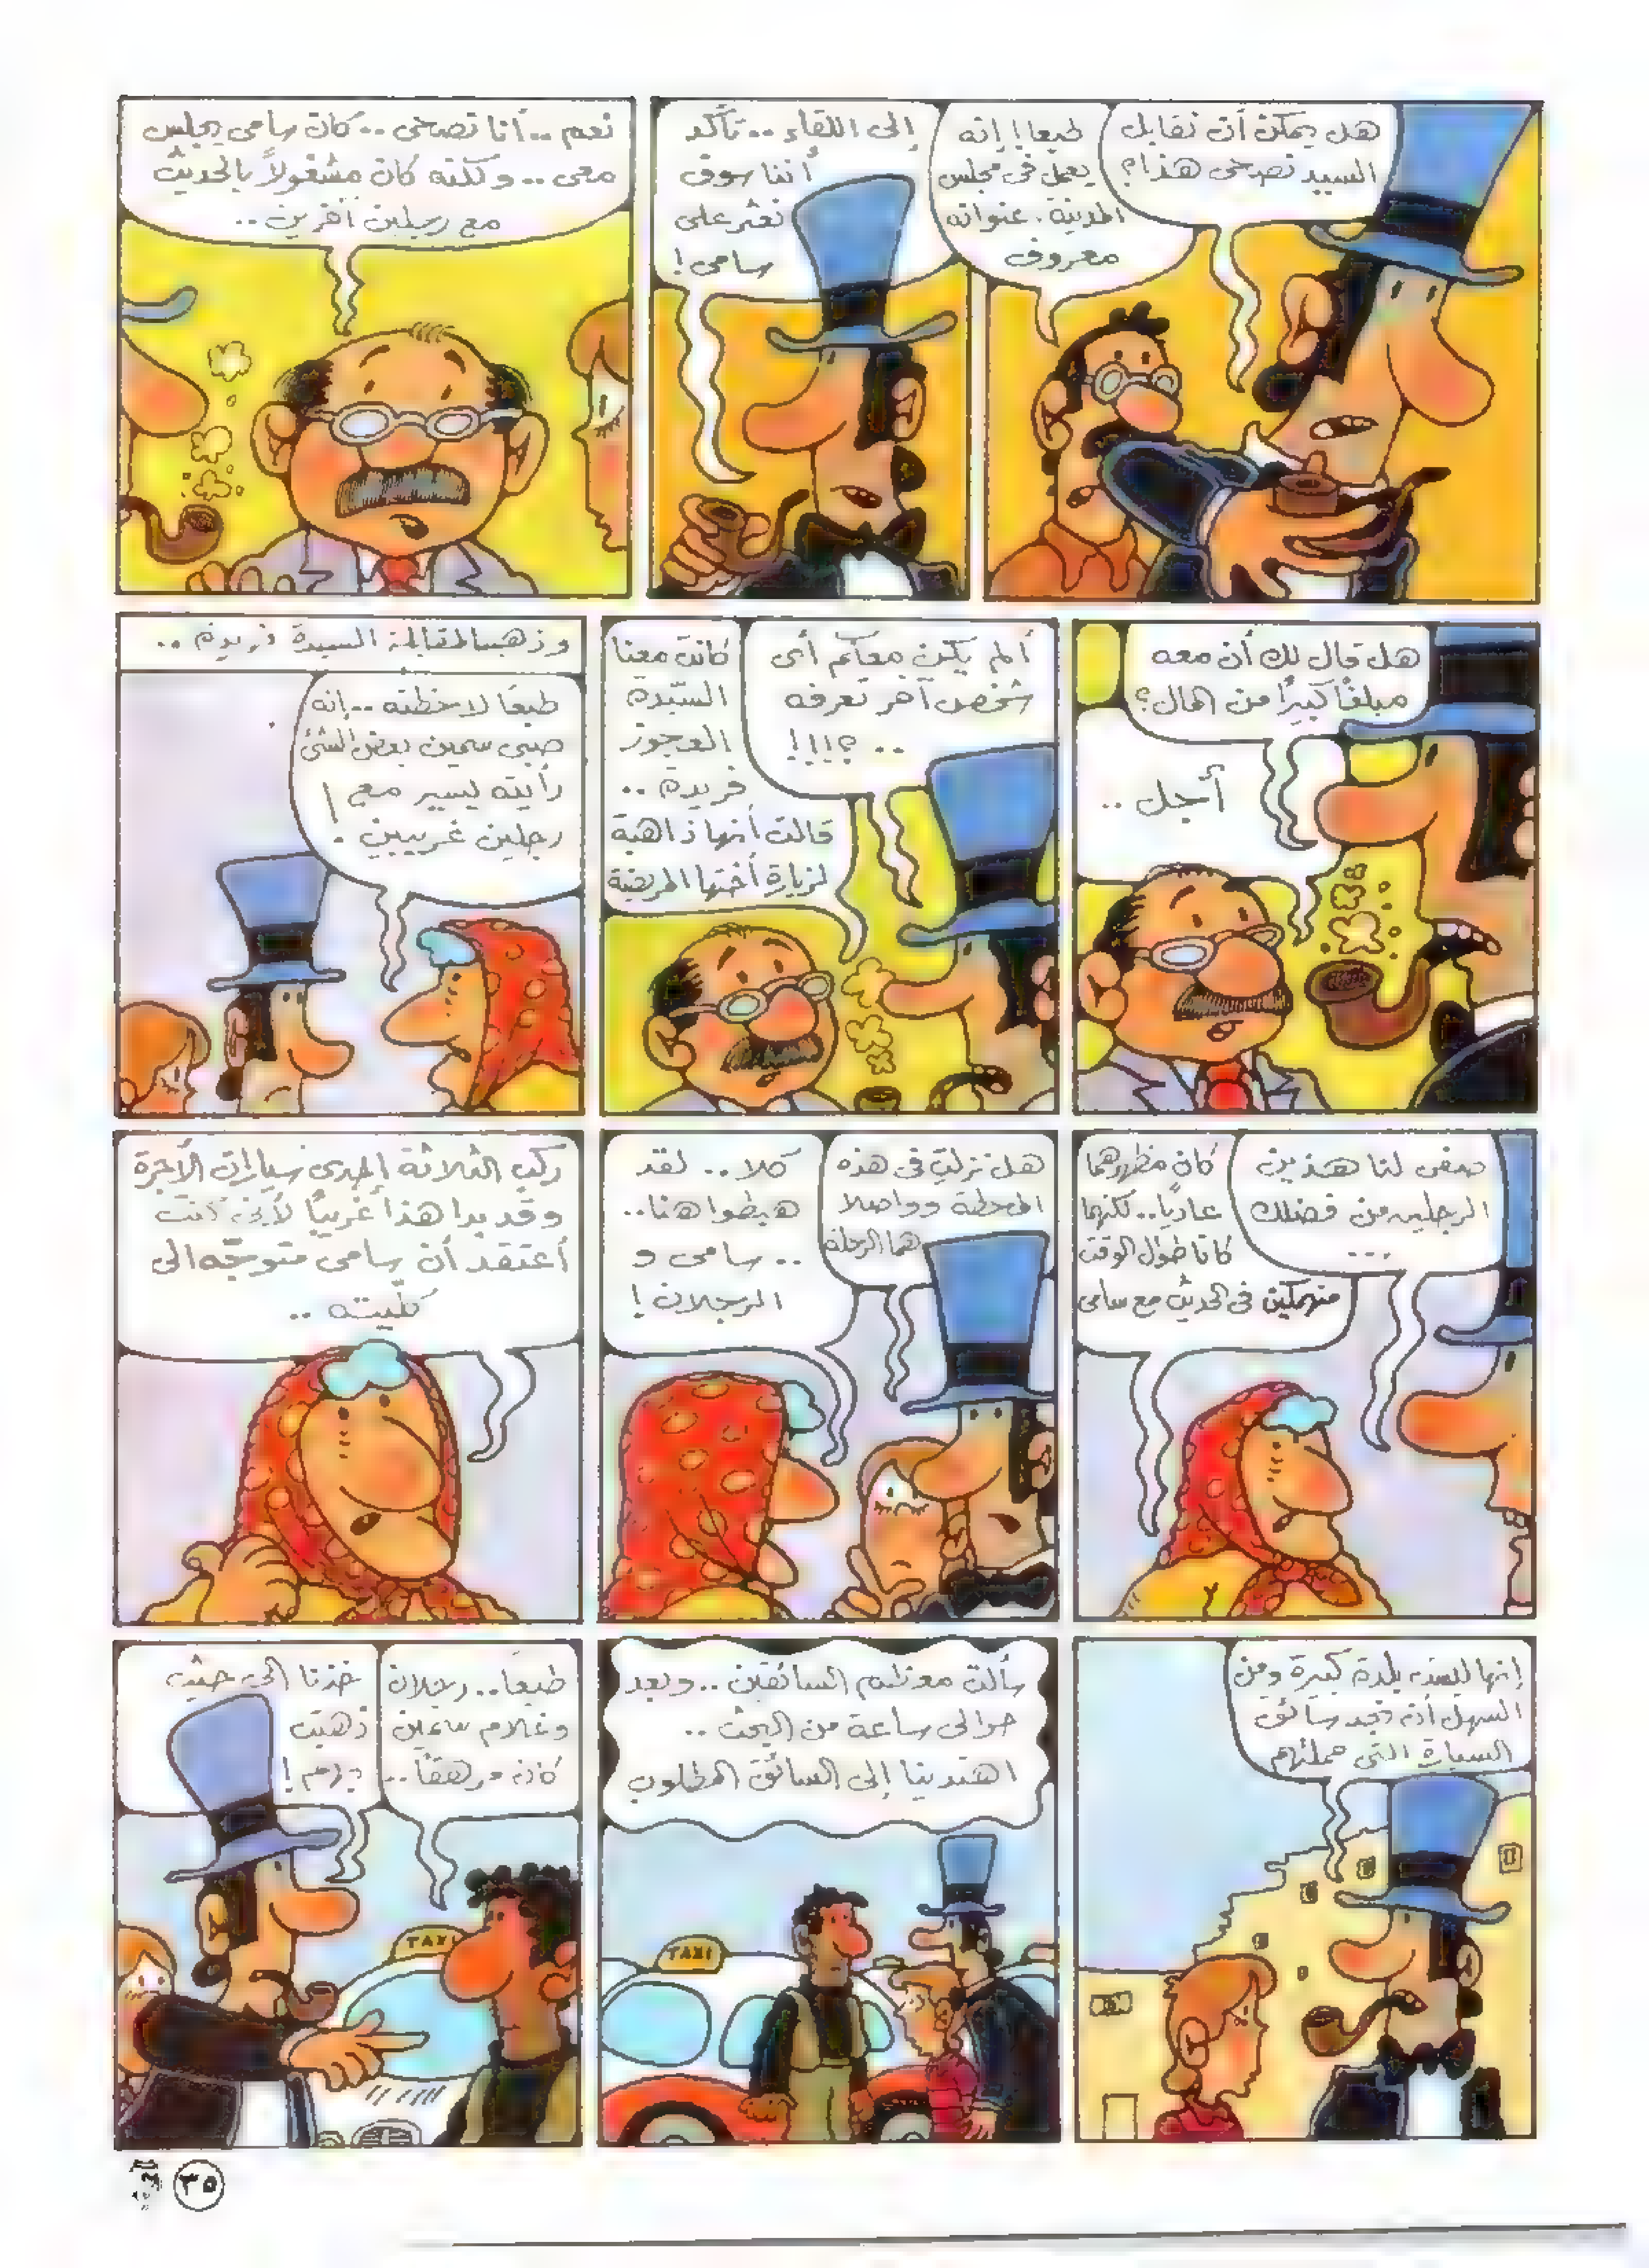 هل يمكن أن نقابل
السيد نصحى هذا؟
طبعا! إنه
يعمل فى مجلس
المدينة. عنوانه
معروف
إلى اللقاء .. تأكد
أننا سوف
نعثر على
سامى!
نعم .. أنا نصحى .. كان سامى يجلس
معى .. ولكنه كان مشغولاً بالحديث
مع رجلين آخرين ..
هل قال لك أن معه
مبلغاً كبيرًا من المال؟
أجل ..
ألم يكن معكم أى
شخص آخر تعرفه
..؟!!!
كانت معنا
السيّدة
العجوز
فريدة ..
قالت أنها ذاهبة
لزيارة أختها المريضة
وذهبنا لمقابلة السيدة فريدة ..
طبعًا لاحظته .. إنه
صبى سمين بعض الشئ
رأيته يسير مع
رجلين غريبين .
صفى لنا هذين
الرجلين من فضلك
...
كان مظهرهما
عاديًا.. لكنهما
كانا طوال الوقت
منهمكين فى الحديث مع سامى
هل نزلتِ فى هذه
المحطة وواصلا
هما الرحلة
كلا .. لقد
هبطوا هنا..
.. سامى و
الرجلان !
ركب الثلاثة إحدى سيارات الأجرة
وقد بدا هذا غريبًا لأننى كنت
أعتقد أن سامى متوجّه الى
كليته ..
إنها ليست بلدة كبيرة ومن
السهل أن نجد سائق
السيارة التى حملتهم
سألت معظم السائقين .. وبعد
حوالى ساعة من البحث ..
اهتدينا إلى السائق المطلوب
طبعًا.. رجلان
وغلام سمين
كان مرهقاً..
خذنا الى حيث
ذهبت
بهم !
TAXI
TAXI
٣٥